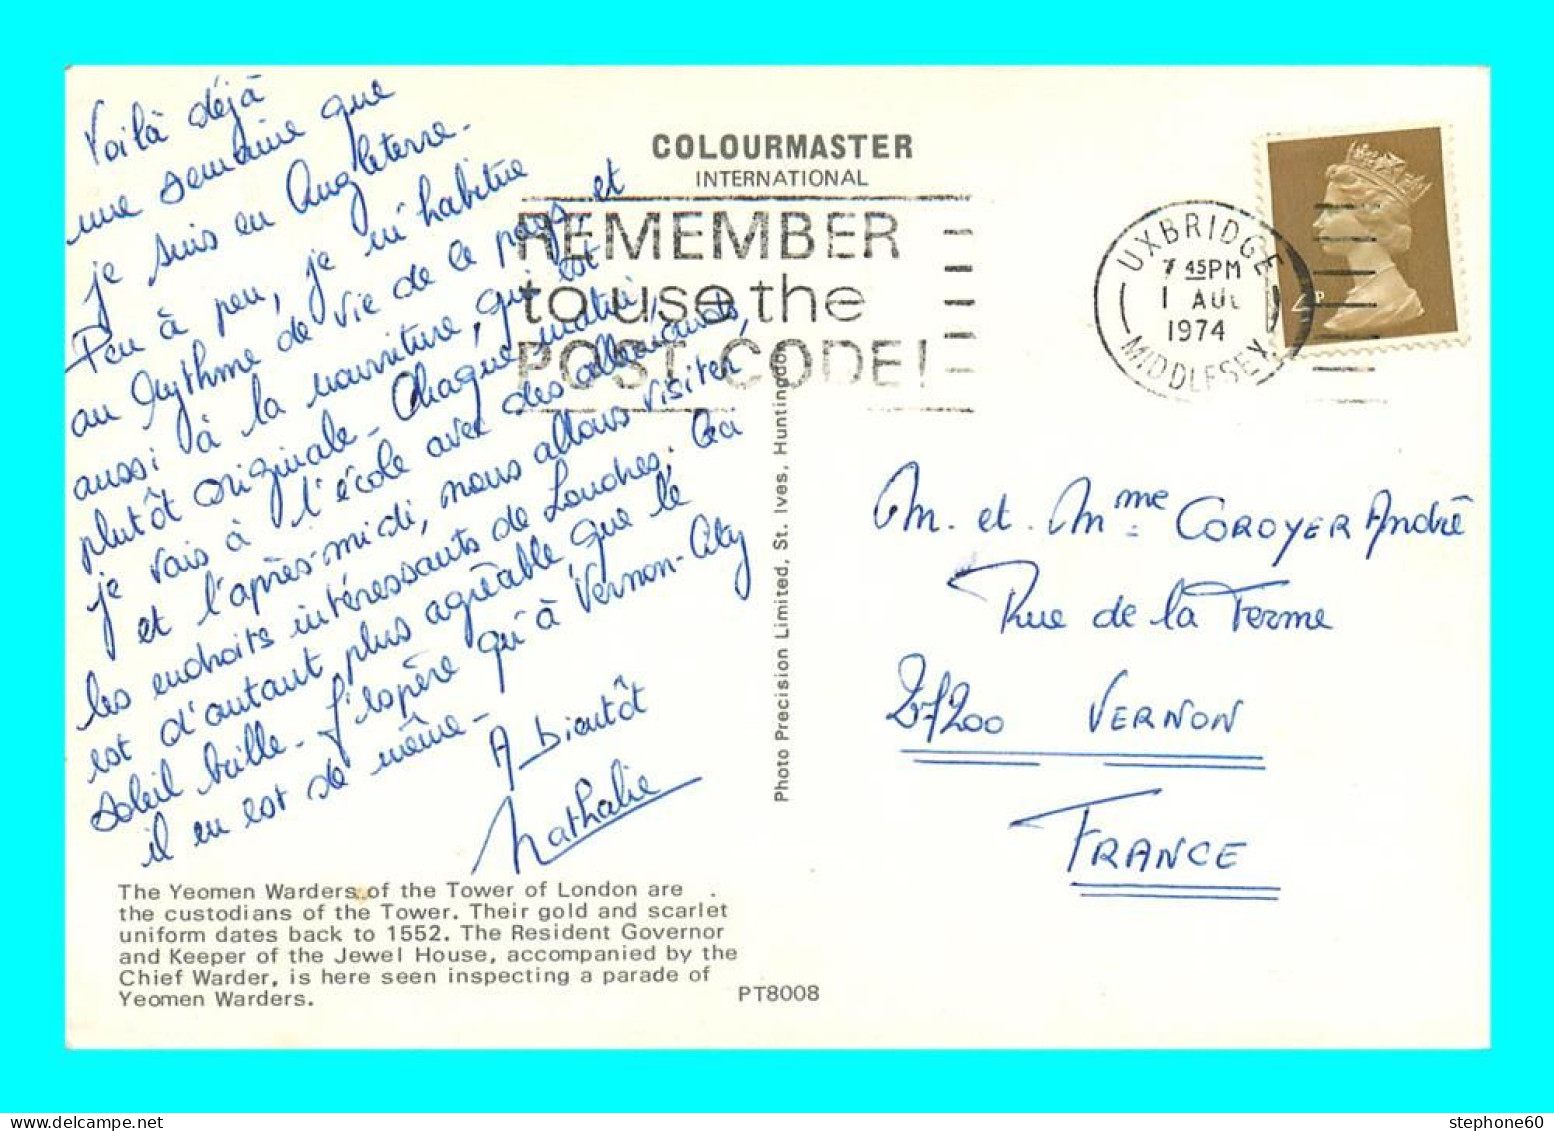 Voilà déjà
une semaine que
je suis en Angleterre.
Peu à peu, je m'habitue
au rythme de vie de ce pays, et
aussi à la nourriture, qui est
plutôt originale. Chaque matin,
je vais à l'école avec des allemands,
et l'après-midi, nous allons visiter
les endroits intéressants de Londres. Ceci
est d'autant plus agréable que le
soleil brille. J'espère qu'à Vernon-City
il en est de même -
A bientôt
Nathalie
The Yeomen Warders of the Tower of London are
the custodians of the Tower. Their gold and scarlet
uniform dates back to 1552. The Resident Governor
and Keeper of the Jewel House, accompanied by the
Chief Warder, is here seen inspecting a parade of
Yeomen Warders.
PT8008
COLOURMASTER
INTERNATIONAL
REMEMBER
to use the
POST CODE!
Photo Precision Limited, St. Ives, Huntingdon
UXBRIDGE
7 45PM
1 AUG
1974
MIDDLESEX
4P
M. et Mme COROYER André
Rue de la Ferme
27200 VERNON
FRANCE
stephone60